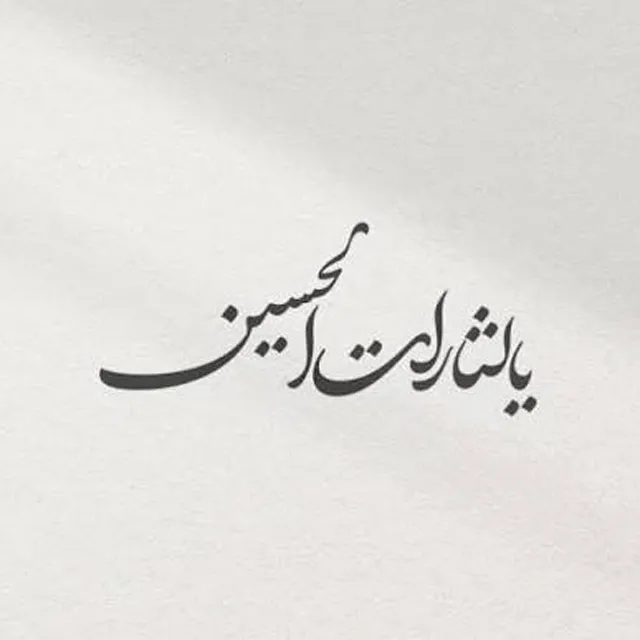 یا لثارات الحسین